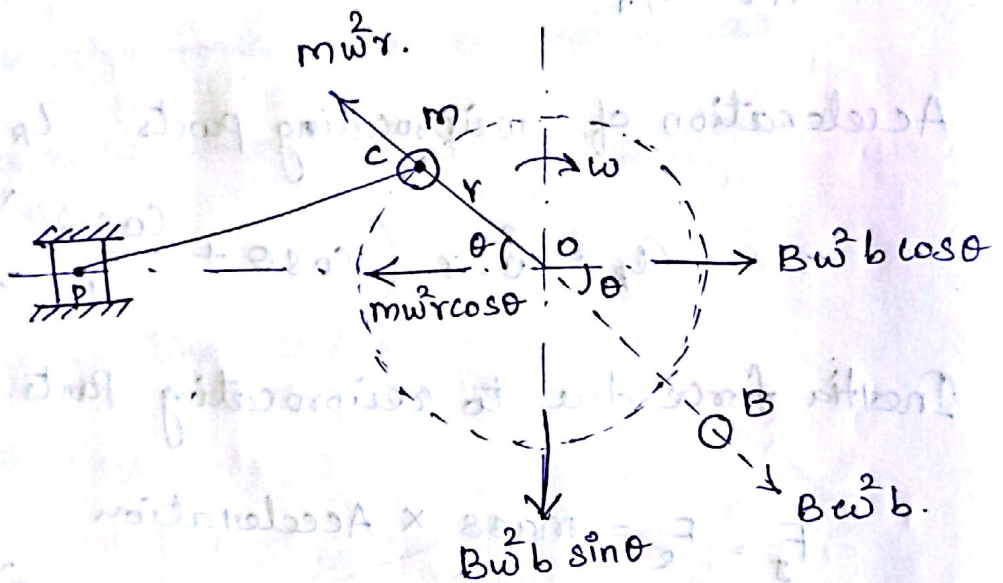 mω²r.
m
C
r
ω
θ
O
Bω²b cosθ
θ
P
mω²rcosθ
B
Bω²b.
Bω²b sinθ